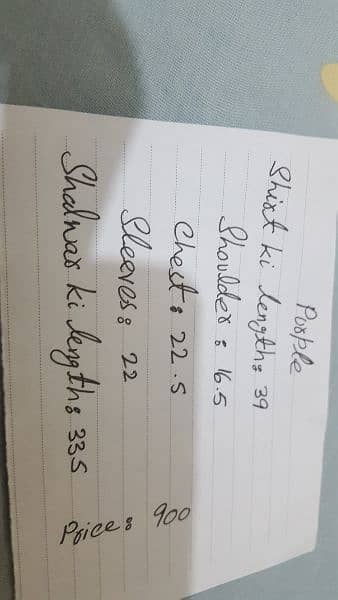 Purple
Shirt ki length: 39
Shoulder: 16.5
Chest: 22.5
Sleeves: 22
Shalwar ki length: 33.5
Price: 900